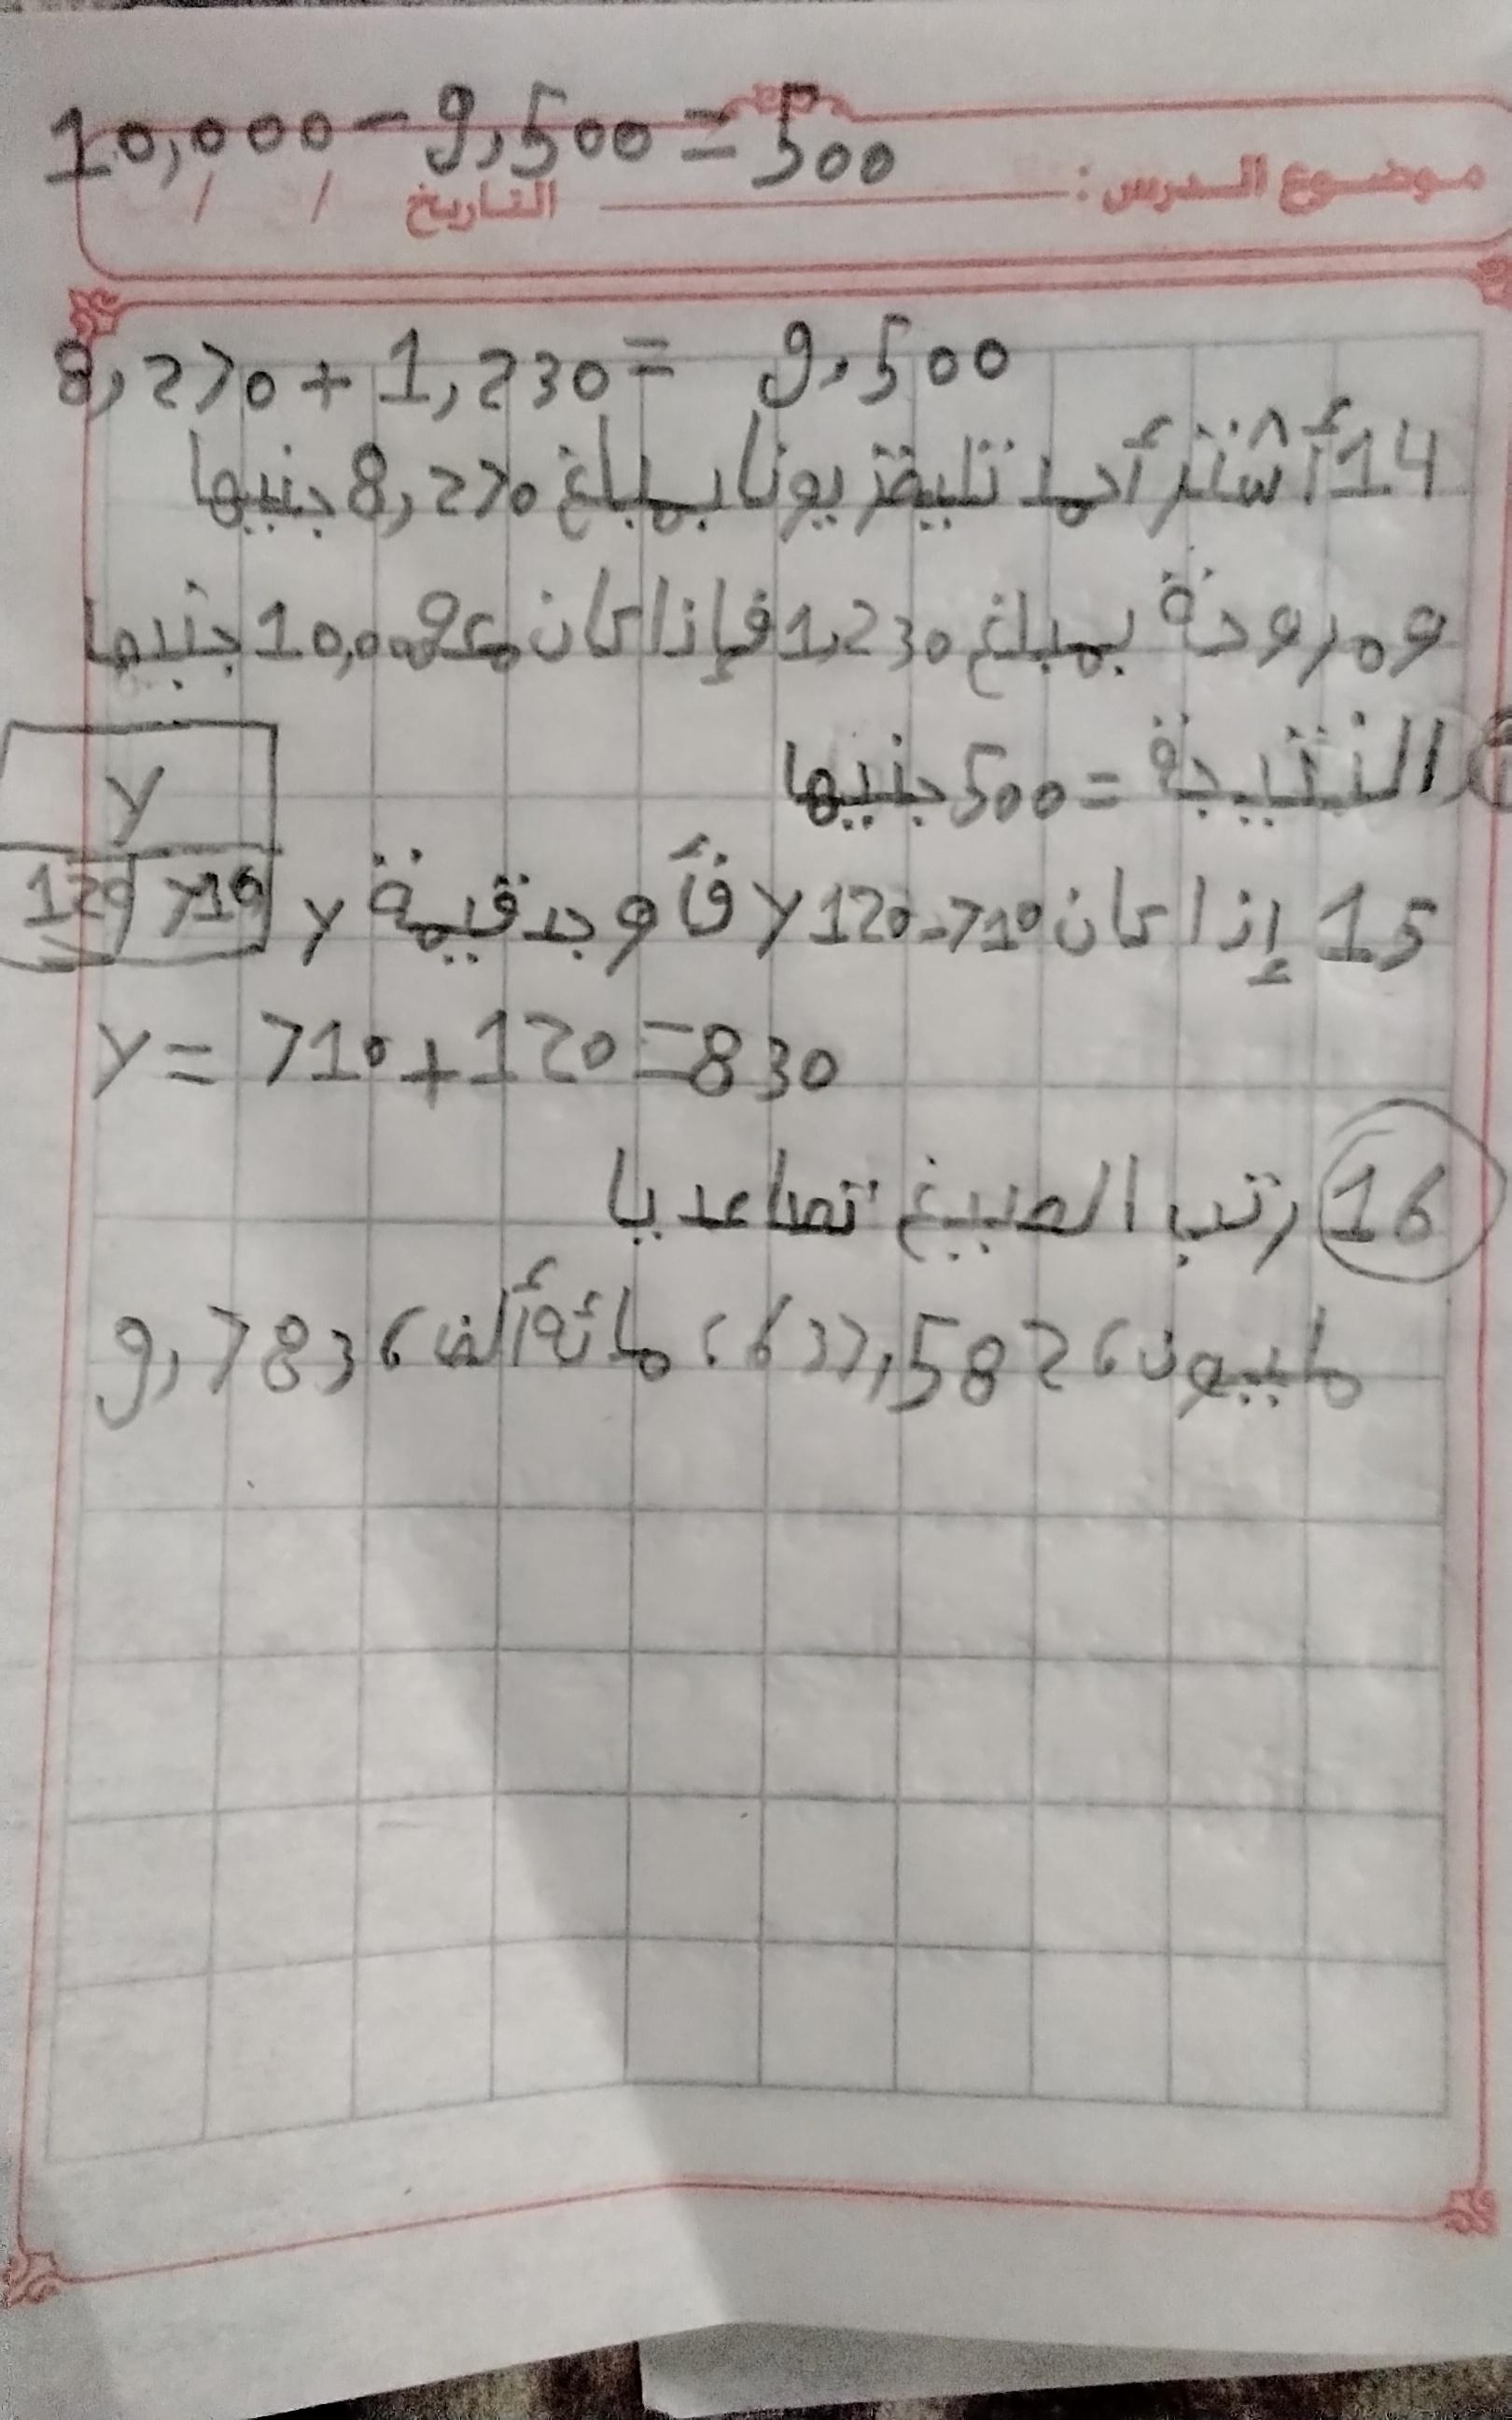 10,000 - 9,500 = 500
موضوع الدرس : التاريخ / /
8,270 + 1,230 = 9,500
14 أشتر أحمد تليفزيونا بمبلغ 8,270 جنيها
ومروحة بمبلغ 1,230 فإذا كان معه 10,000 جنيها
النتيجة = 500 جنيها
y
120 710
15 إذا كان y 120 = 710 فأوجد قيمة y
y = 710 + 120 = 830
16 رتب الصيغ تصاعديا
مليون، 582, ، مائة ألف، 9,783